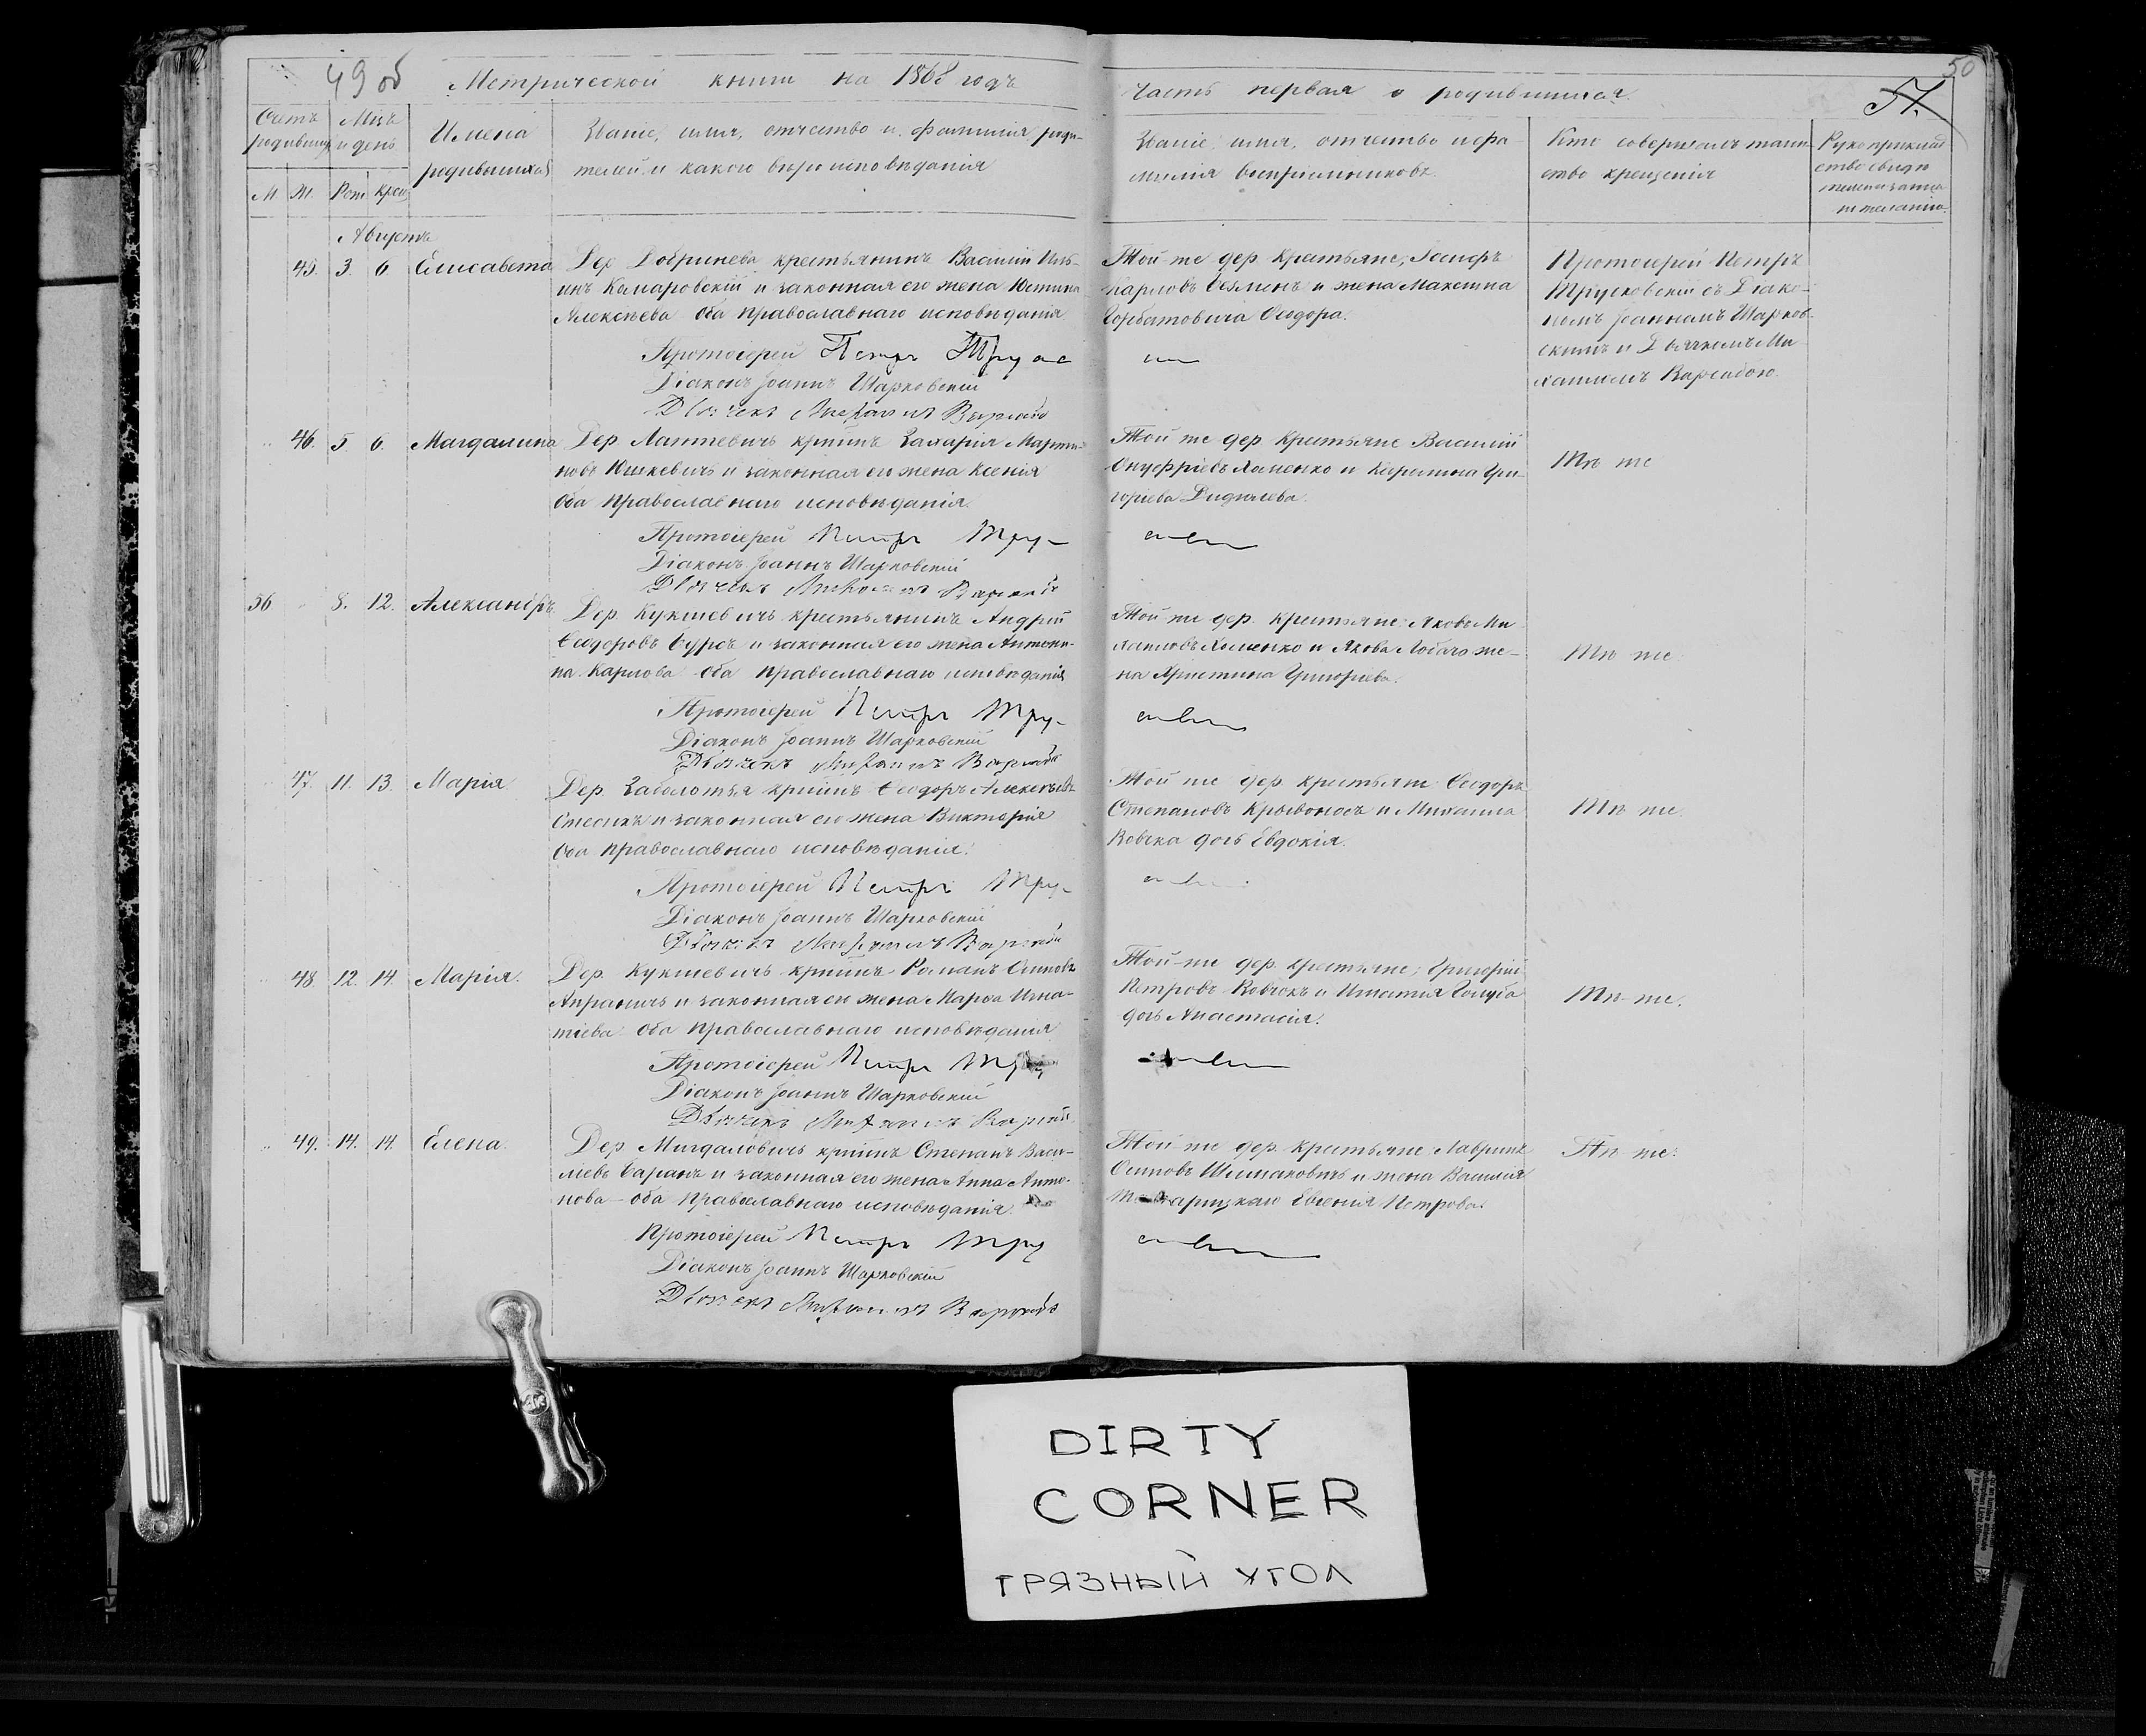 49 об Метрической книги на 1868 годъ
Часть первая о родившихся.
50
51.
Счетъ родившихся
М. Ж.
Мцъ и день
Рож. Крещ.
Имена
родившихся
Званіе, имя, отчество и фамилія роди-
телей и какого вѣроисповѣданія
Званіе, имя, отчество и фа-
милія воспріемниковъ.
Кто совершалъ таин-
ство крещенія
Рукоприклад
ство свидѣ
телей записи
по желанію.
Августъ
45. 3. 6. Елисавета
Дер. Добринева крестьянинъ Василій Иль-
инъ Камаровскій и законная его жена Юстина
Алексѣева оба православнаго исповѣданія
Протоіерей Петръ
Діаконъ Іоаннъ Шарковскій
Дьячекъ Михаилъ
Той-же дер. крестьяне, Іосифъ
Карповъ и жена Максима
Горбатовича Ѳеодора.
Протоіерей Петръ
Трусковскій съ Діако-
номъ Іоанномъ Шарков-
скимъ и Дьячкомъ Ми-
хаиломъ Варсабою.
46. 5. 6. Магдалина
Дер. Лаптевичъ крщинъ Захарія Марти-
новъ Юшкевичъ и законная его жена Ксенія
оба православнаго исповѣданія.
Протоіерей Петръ
Діаконъ Іоаннъ Шарковскій
Дьячекъ Михаилъ
Той же дер. крестьяне Василій
Онуфріевъ Хоменко и Катерина Гри-
горіева
Тѣ же
56 8. 12. Александръ
Дер. Кукшевичъ крестьянинъ Андрей
Ѳеодоровъ и законная его жена Антони-
на Карпова оба православнаго исповѣданія
Протоіерей Петръ
Діаконъ Іоаннъ Шарковскій
Дьячекъ Михаилъ
Той же дер. крестьяне: Яковъ Ми
хаиловъ Хоменко и Якова же-
на Христина Григоріева.
Тѣ же.
47. 11. 13. Марія.
Дер. Заболотья крщинъ Ѳеодоръ Алексѣевъ
и законная его жена Викторія
оба православнаго исповѣданія.
Протоіерей Петръ
Діаконъ Іоаннъ Шарковскій
Дьячекъ Михаилъ
Той же дер. крестьяне Ѳеодоръ
Степановъ Кривоносъ и Михаила
Вовека дочь Евдокія.
Тѣ же.
48. 12. 14. Марія.
Дер. Кукшевичъ крщинъ Романъ Осиповъ
и законная его жена Марѳа Игна-
тіева оба православнаго исповѣданія
Протоіерей Петръ
Діаконъ Іоаннъ Шарковскій
Дьячекъ Михаилъ
Той-же дер. крестьяне, Григорій
Петровъ и Игнатія Голуба
дочь Анастасія.
Тѣ-же.
49. 14. 14. Елена.
Дер. Мигдаловичъ крщинъ Степанъ Васи-
ліевъ Баранъ и законная его жена Анна Анто-
нова оба православнаго исповѣданія.
Протоіерей Петръ
Діаконъ Іоаннъ Шарковскій
Дьячекъ Михаилъ
Той же дер. крестьяне Лаврынъ
Осиповъ и жена Василія
Евгенія Петрова.
Тѣ же.
DIRTY
CORNER
ГРЯЗНЫЙ УГОЛ